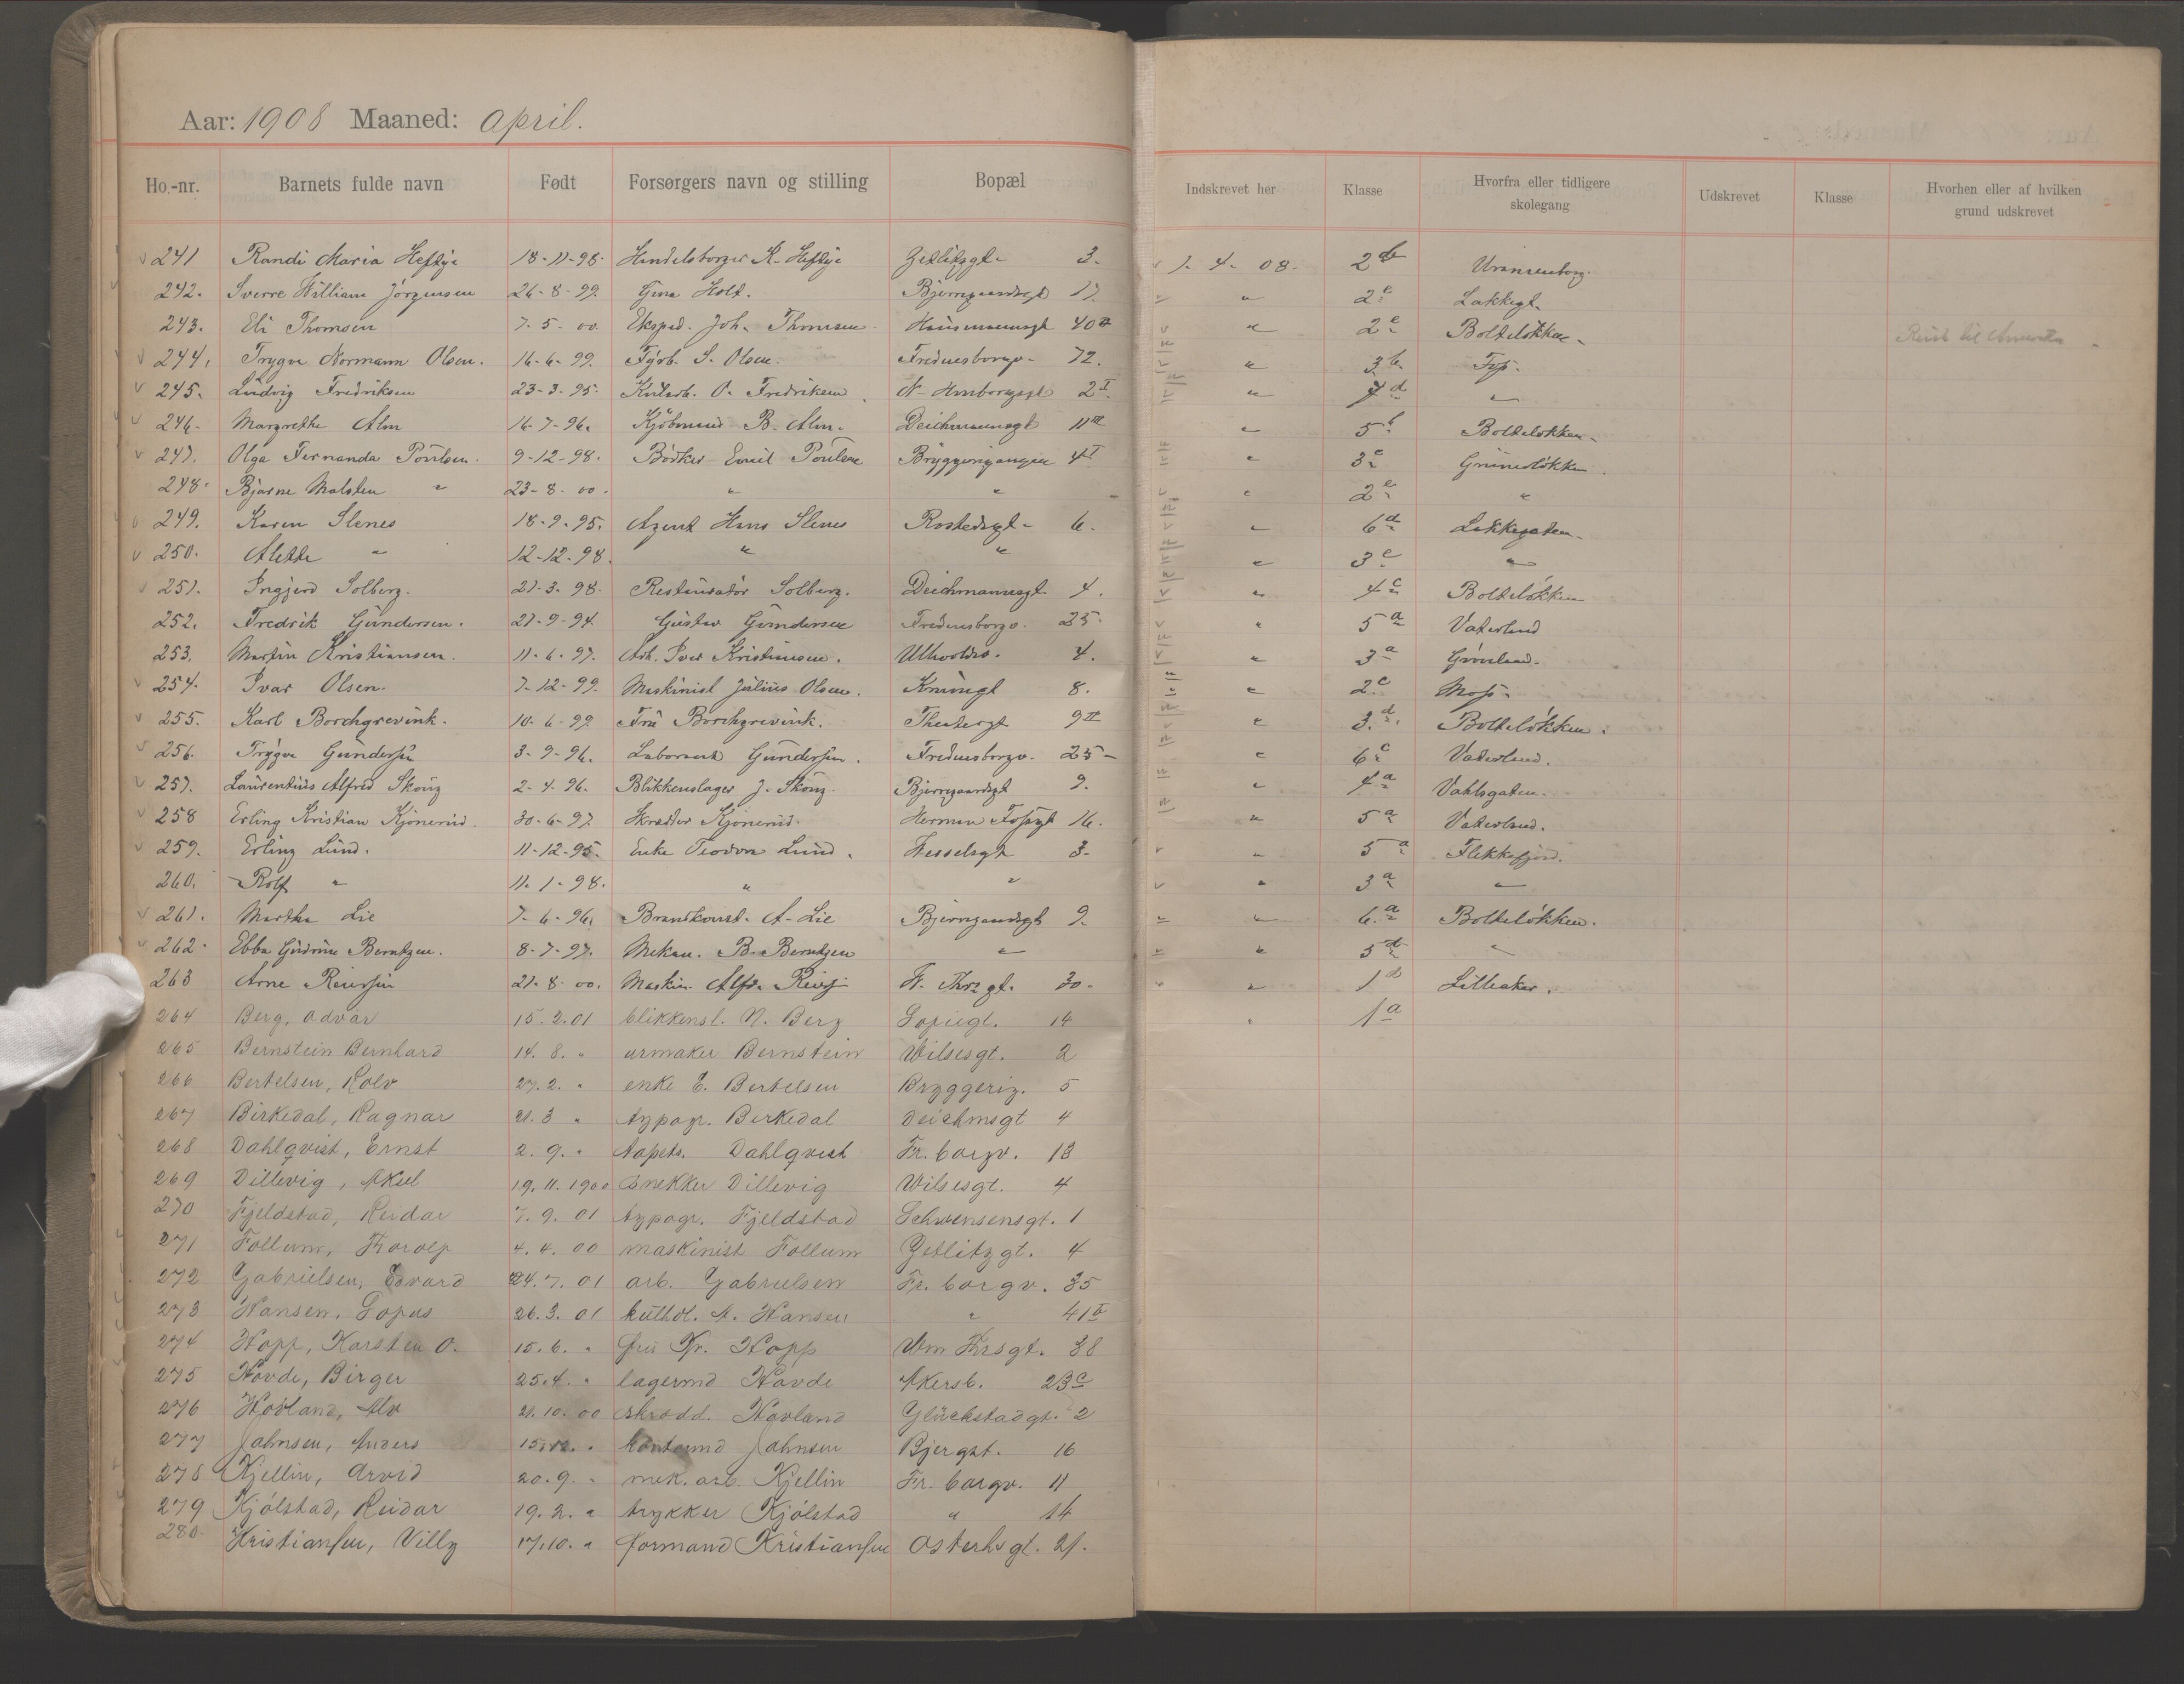 Aar: 1908 Maaned: april.
Ho.-nr. Barnets fulde navn Født Forsørgers navn og stilling Bopæl Indskrevet her Klasse Hvorfra eller tidligere skolegang Udskrevet Klasse Hvorhen eller af hvilken grund udskrevet
241 Randi Maria Heftye 18-11-98. Handelsborger K. Heftye Zetlitzgt. 3. 1-4-08. 2 b Uranienborg.
242. Sverre William Jörgensen 26-8-99. Gina Holt. Bjerregaardsgt 17. " 2 e Lakkegt.
243. Eli Thomsen 7-5-00. Eksped. Joh. Thomsen. Hausmannsgt 40 " 2 e Bolteløkken. Reist til Amerika
244. Trygve Normann Olsen. 16-6-99. Fyrb. S. Olsen. Fredensborgv. 72. " 3 b.
245. Ludvig Fredriksen 23-3-95. O. Fredriksen 2 I " 7 d "
246. Margrethe Alm 16-7-96. Kjöbmand B. Alm. Deichmannsgt 11 " 5 Bolteløkken.
247. Olga Fernanda Poulsen. 9-12-98. Bödker Emil Poulsen Bryggerigangen 4 I " 3 e Grünerløkken.
248. Bjarne Malsten " 23-8-00. " " " 2 e "
249. Karen Slenes 18-9-95. Agent Hans Slenes Rostedsgt. 6. " 6 d Lakkegaten.
250. Alette " 12-12-98. " " " 3 e "
251. Ingjerd Solberg. 21-3-98. Restauratör Solberg. Deichmannsgt 4. " 4 c Bolteløkken
252. Fredrik Gundersen. 27-9-94. Gustav Gundersen Fredensborgv. 25. " 5 a Vaterland
253. Martin Kristiansen. 11-6-97. Arb. Iver Kristiansen. Ullevoldsv. 4. " 3 a Grønland.
254. Ivar Olsen. 7-12-99. Maskinist Julius Olsen. 8. " 2 c Moss.
255. Karl Borchgrevink. 10-6-99. Fru Borchgrevink. Theatergt 9 II " 3 d. Bolteløkken.
256. Trygve Gundersen 3-9-96. Laborant Gundersen. Fredensborgv. 25 " 6 c Vaterland.
257. Laurentius Alfred Skoug 2-4-96. Blikkenslager J. Skoug. Bjerregaardsgt 9. " 4 a Vahlsgaten.
258 Erling Kristian Kjonerud. 30-6-97. Skrædder Kjonerud. Herman Fossgt 16. " 5 a Vaterland.
259. Erling Lund. 11-12-95. Enke Teodora Lund. Wesselsgt 3. " 5 a Flekkefjord.
260. Rolf " 11-1-98. " " " 3 a "
261. Martha Lie 7-6-96. Brandkonst. A. Lie Bjerregaardsgt 9. " 6 a Bolteløkken.
262. Ebba Gudrun Berntzen. 8-7-97. Mekan. B. Berntzen " " 5 d "
263 Arne Reiersen 21-8-00. Maskin. Alfr. 30. " 1 d Lilleaker.
264 Berg, Odvar 15.2.01 blikkensl. N. Berg Sofiegt. 14 " 1 a
265 Bernstein Bernhard 14.8. " urmaker Bernstein Wilsesgt. 2
266 Bertelsen, Rolv 27.2. " enke E. Bertelsen Bryggerig. 5
267 Birkedal, Ragnar 21.3 " typogr. Birkedal Deichmsgt 4
268 Dahlqvist, Ernst 2.9. " tapets. Dahlqvist Fr.borgv. 13
269 Dillevig, Aksel 19.11.1900 snekker Dillevig Wilsesgt. 4
270 Fjeldstad, Reidar 7.9.01 typogr. Fjeldstad Schwensensgt. 1
271 Follum, Torolf 4.4.00 maskinist Follum Zetlitzgt. 4
272 Gabrielsen, Edvard 24.7.01 arb. Gabrielsen Fr.borgv. 35
273 Hansen, Sofus 26.3.01 kulhdl. A. Hansen " 41 I
274 Hopp, Karsten O. 15.6. " fru Kr. Hopp Wm Thrsgt. 38
275 Hovde, Birger 25.4. " lagermd Hovde Akersb. 23 c
276 Hovland, Alv 21.10.00 skredd. Hovland Glückstadgt. 2
277 Jahnsen, Anders 15.12. " kontormd Jahnsen Bjergst. 16
278 Kjellin, Arvid 20.9. " mek. arb. Kjellin Fr.borgv. 11
279 Kjølstad, Reidar 19.2. " trykker Kjølstad " 14
280. Kristiansen, Villy 17.10. " formand Kristiansen Osterhsgt. 21.